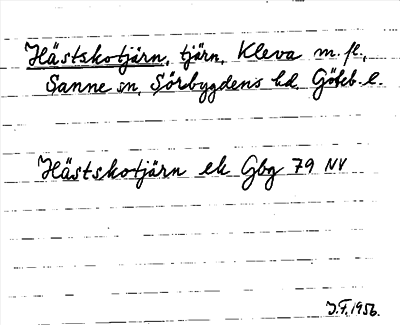 Hästskotjärn, tjärn, Kleva m. fl.,
Sanne sn, Sörbygdens hd, Göteb. l.
Hästskotjärn ek Gbg 79 NV
J.F. 1956.